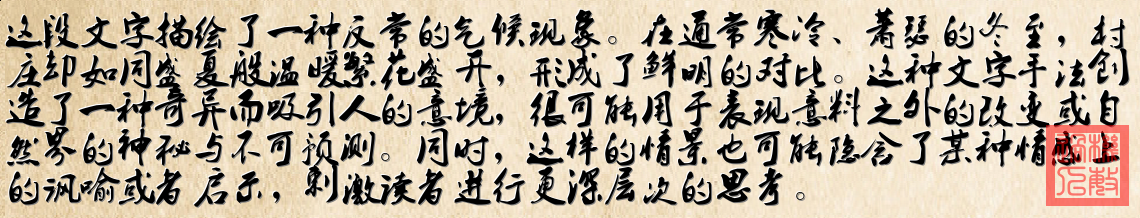 这段文字描绘了一种反常的气候现象。在通常寒冷、萧瑟的冬至，村
庄却如同盛夏般温暖繁花盛开，形成了鲜明的对比。这种文字手法创
造了一种奇异而吸引人的意境，很可能用于表现意料之外的改变或自
然界的神秘与不可预测。同时，这样的情景也可能隐含了某种情感上
的讽喻或者启示，刺激读者进行更深层次的思考。